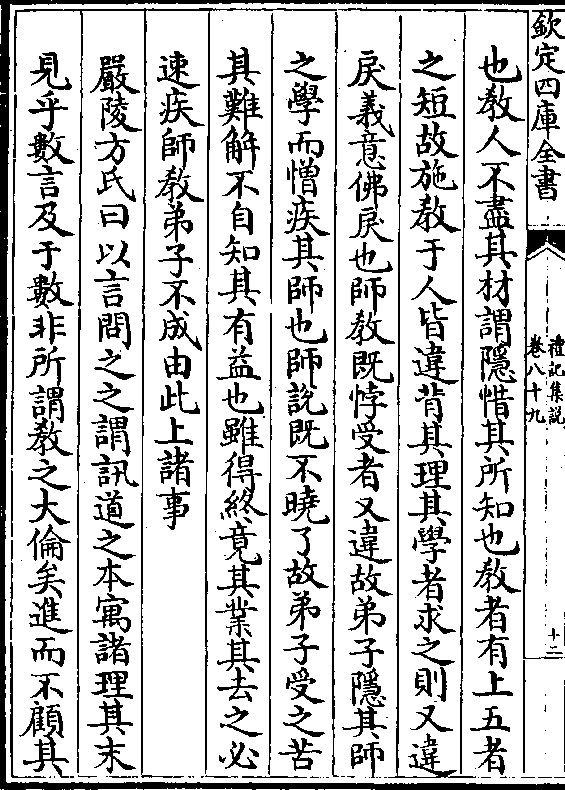 欽定四庫全書
禮記集說
卷八十九
十二
也教人不盡其材謂隱惜其所知也教者有上五者
之短故施教于人皆違背其理其學者求之則又違
戾義意佛戾也師教既悖受者又違故弟子隱其師
之學而憎疾其師也師說既不曉了故弟子受之苦
其難解不自知其有益也雖得終竟其業其去之必
速疾師教弟子不成由此上諸事
嚴陵方氏曰以言問之之謂訊道之本寓諸理其末
見乎數言及于數非所謂教之大倫矣進而不顧其